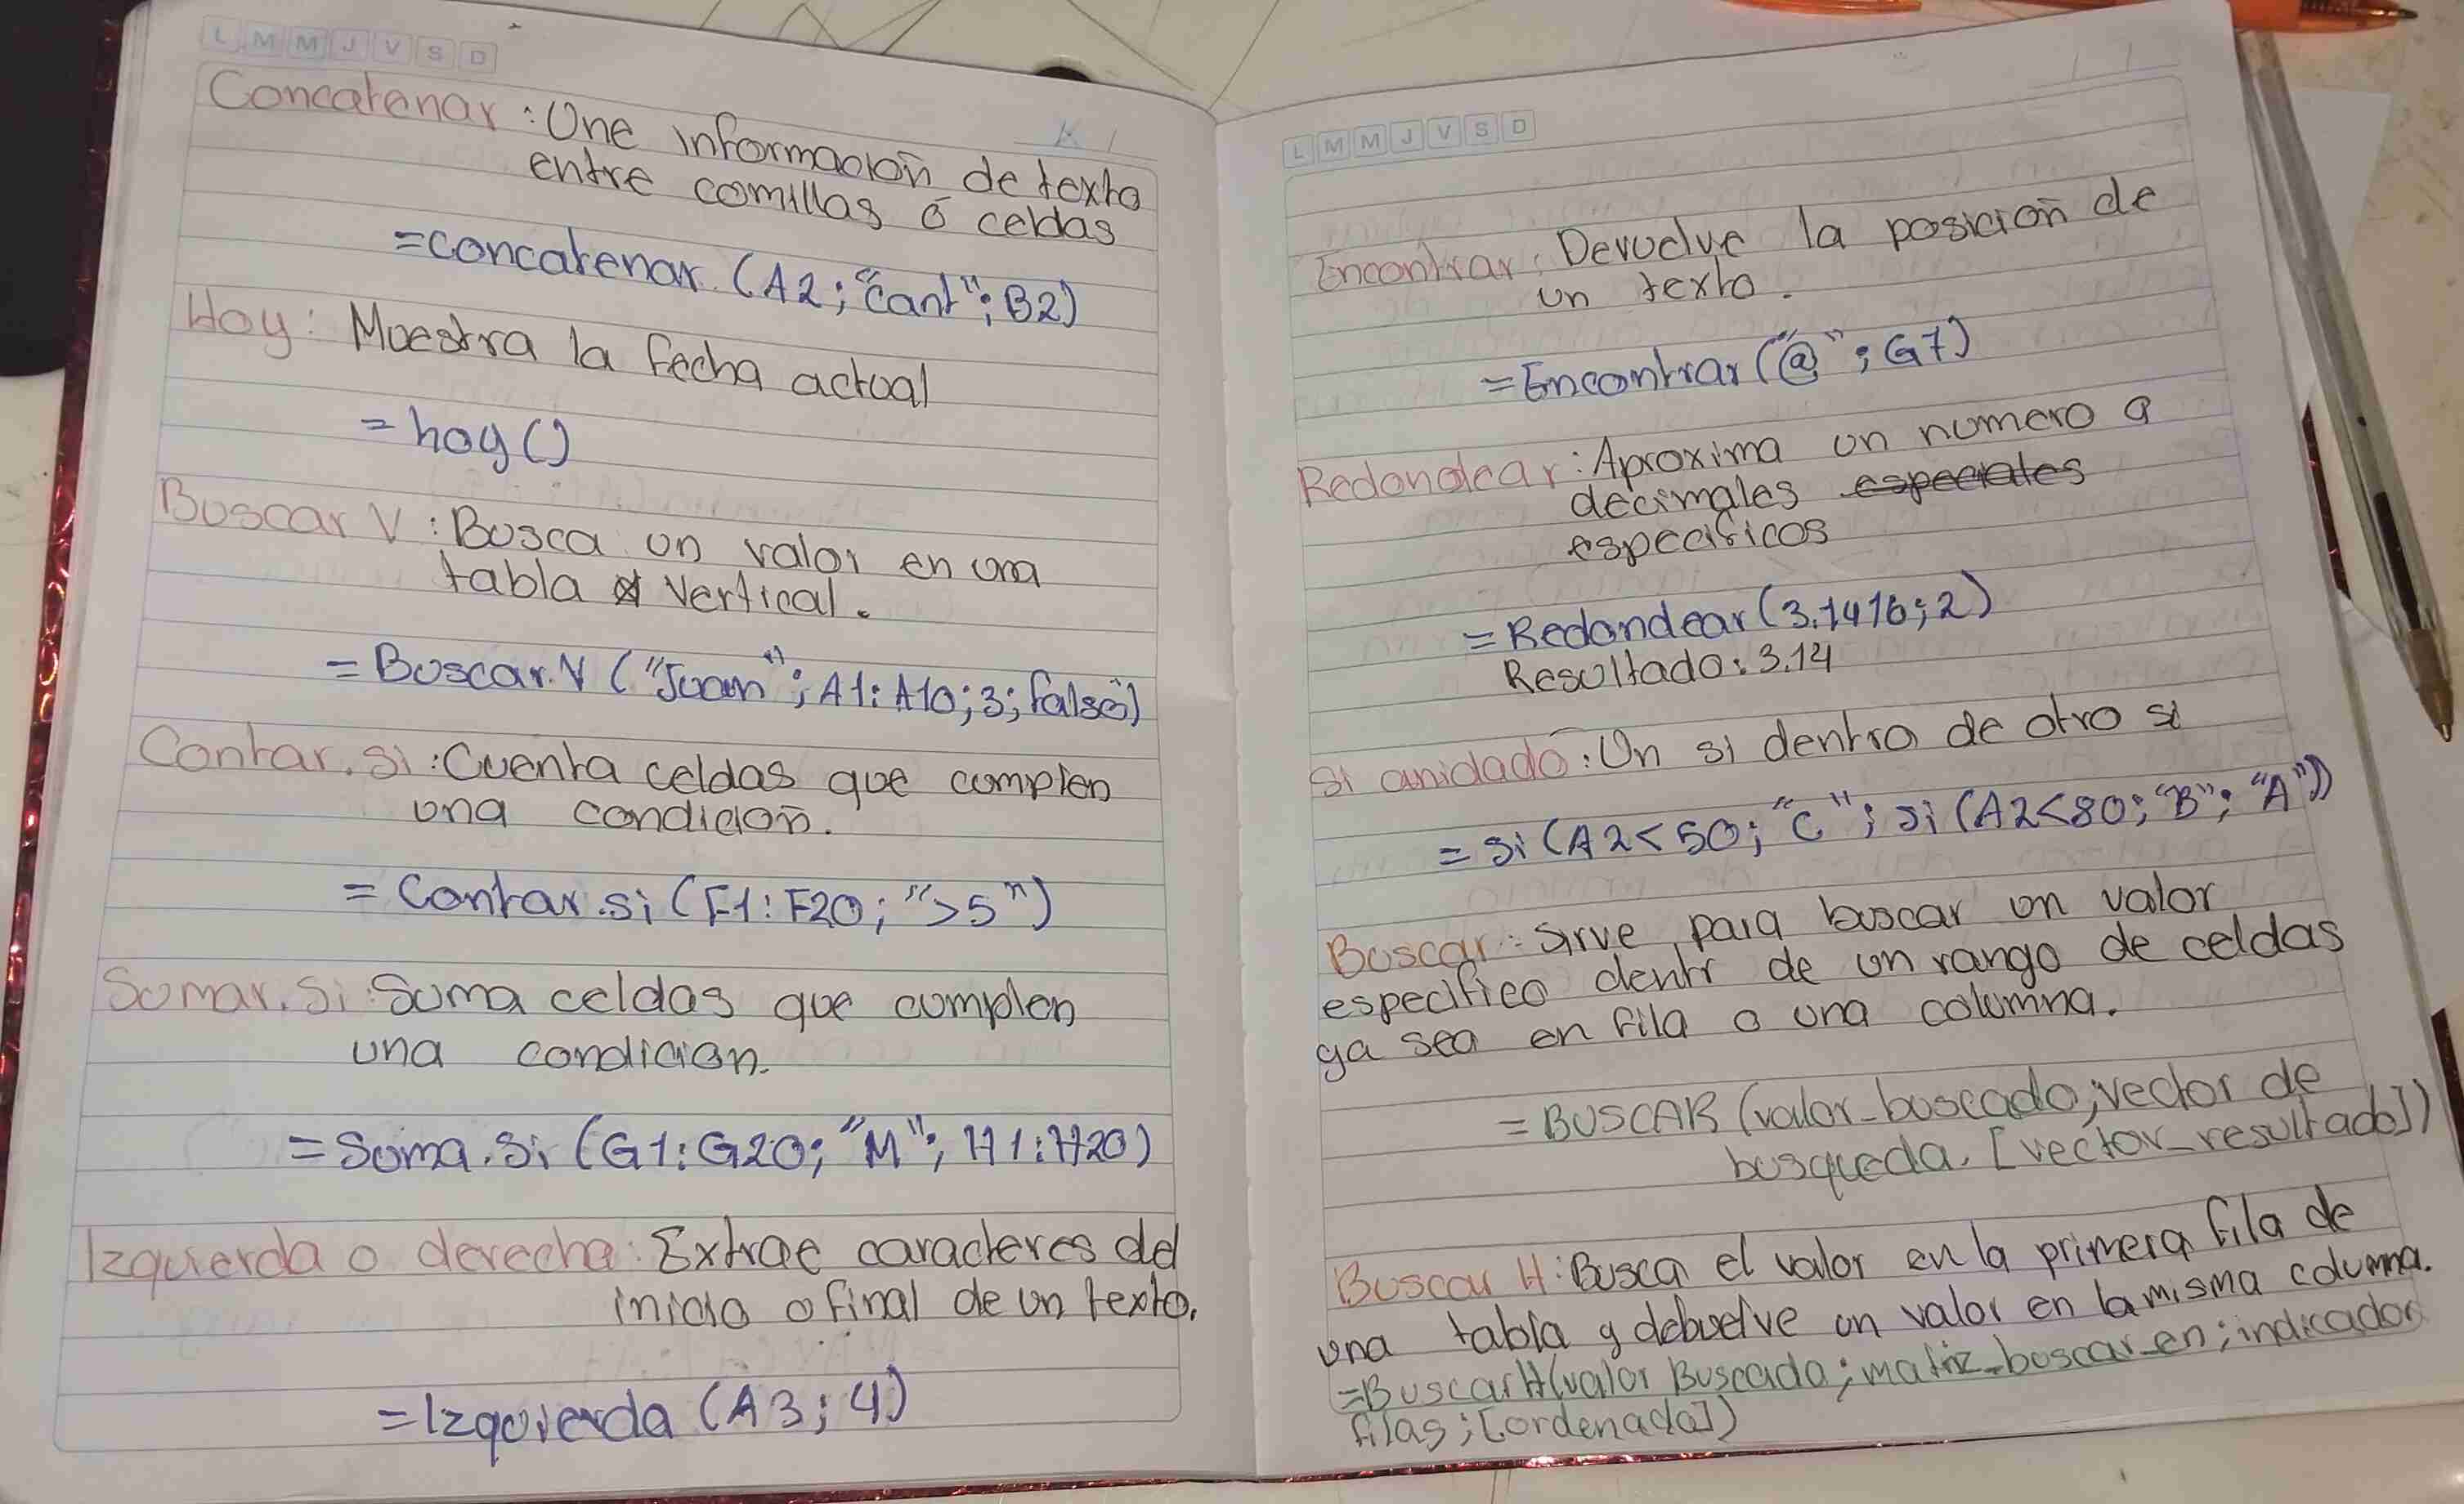 L M M J V S D
Concatenar : Une información de texto
entre comillas ó celdas
=concatenar (A2; "cant"; B2)
Hoy: Muestra la fecha actual
= hoy()
Buscar V : Busca un valor en una
tabla vertical.
= Buscar.V ("Juan"; A1:A10; 3; falso)
Contar.si : Cuenta celdas que complen
una condición.
= Contar.si (F1:F20; ">5")
Somar.Si : Suma celdas que complen
una condición.
=Suma.Si (G1:G20; "M"; H1:H20)
Izquierda o derecha: Extrae caracteres del
inicio o final de un texto.
=Izquierda (A3; 4)
L M M J V S D
Encontrar : Devuelve la posición de
un texto.
=Encontrar ("@"; G7)
Redondear : Aproxima un numero a
decimales especiales
especificos
= Redondear (3.1416; 2)
Resultado: 3.14
Si anidado : Un si dentro de otro si
= si (A2<50; "C"; si (A2<80; "B"; "A"))
Buscar : sirve para buscar un valor
especifico dentr de un rango de celdas
ya sea en fila o una columna.
= BUSCAR (valor_buscado; vector de
busqueda. [vector_resultado])
Buscar H : Busca el valor en la primera fila de
una tabla y debuelve un valor en la misma columna.
=BuscarH(valor Buscado; matriz_buscar_en; indicador
filas; [ordenado])